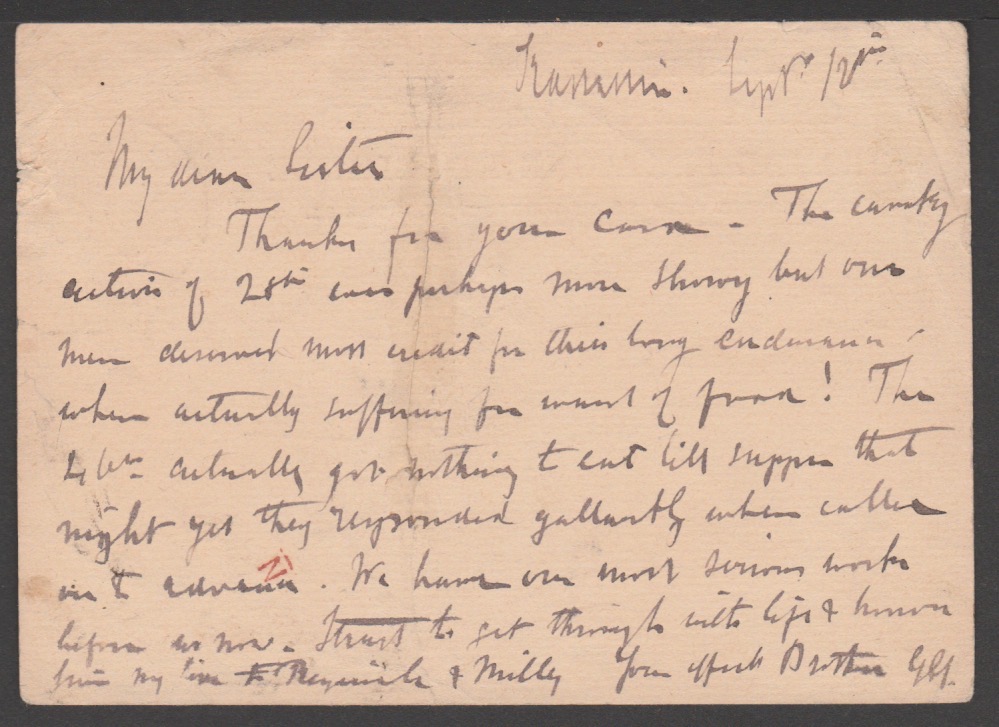 Kassassin. Septr. 12th
My dear Sister
Thanks for your Card - The cavalry
action of 28th was perhaps more showy but our
men deserved most credit for their long endurance -
when actually suffering for want of food! The
46th actually got nothing to eat till supper that
night yet they responded gallantly when called
on to advance. We have our most serious work
before us now - I trust to get through with life & honor
Give my love to & Milly Your affect Brother